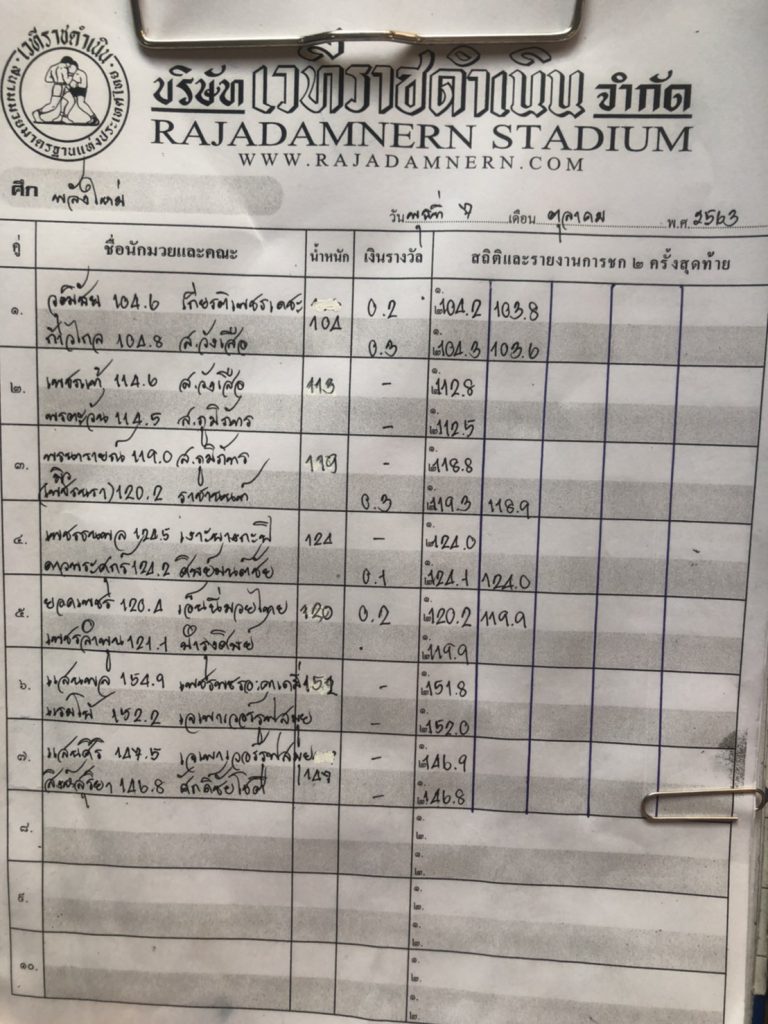 เวทีราชดำเนิน
สนามมวยมาตรฐานแห่งประเทศไทย
บริษัท เวทีราชดำเนิน จำกัด
RAJADAMNERN STADIUM
WWW.RAJADAMNERN.COM
ศึก พลังใหม่
วัน พุธที่ 7 เดือน ตุลาคม พ.ศ. 2563
คู่ ชื่อนักมวยและคณะ น้ำหนัก เงินรางวัล สถิติและรายงานการชก ๒ ครั้งสุดท้าย
๑. วุฒิชัย 104.6 เกียรติเพชรเดชะ 104 0.2 ๑. ๒. 104.2 103.8
ก้าวไกล 104.8 ส.วังเสือ 0.3 ๑. ๒. 104.3 103.6
๒. เพชรแท้ 114.6 ส.วังเสือ 113 - ๑. ๒. 112.8
พรตะวัน 114.5 ส.ภูมิภัทร - ๑. ๒. 112.5
๓. พระนารายณ์ 119.0 ส.ภูมิภัทร 119 - ๑. ๒. 118.8
120.2 ราชานนท์ 0.3 ๑. ๒. 119.3 118.9
๔. เพชรธนพล 124.5 เงาะบางกะปิ 124 - ๑. ๒. 124.0
ดาวพระศุกร์ 124.2 ศิษย์มนต์ชัย 0.1 ๑. ๒. 124.1 124.0
๕. ยอดเพชร 120.4 เอ็นนี่มวยไทย 120 0.2 ๑. ๒. 120.2 119.9
เพชรลำพูน 121.1 บำรุงศิษย์ ๑. ๒. 119.9
๖. แสนพล 154.9 เพชรพชรอะคาเดมี่ 152 - ๑. ๒. 151.8
แรมโบ้ 152.2 เจเพาเวอร์รูฟสมุย - ๑. ๒. 152.0
๗. แสนศิริ 147.5 เจเพาเวอร์รูฟสมุย 147 - ๑. ๒. 146.9
สิงห์สุริยา 146.8 ศักดิ์ชัยโชติ - ๑. ๒. 146.8
๘. ๑.
๒.
๑.
๒.
๙. ๑.
๒.
๑.
๒.
๑๐. ๑.
๒.
๑.
๒.